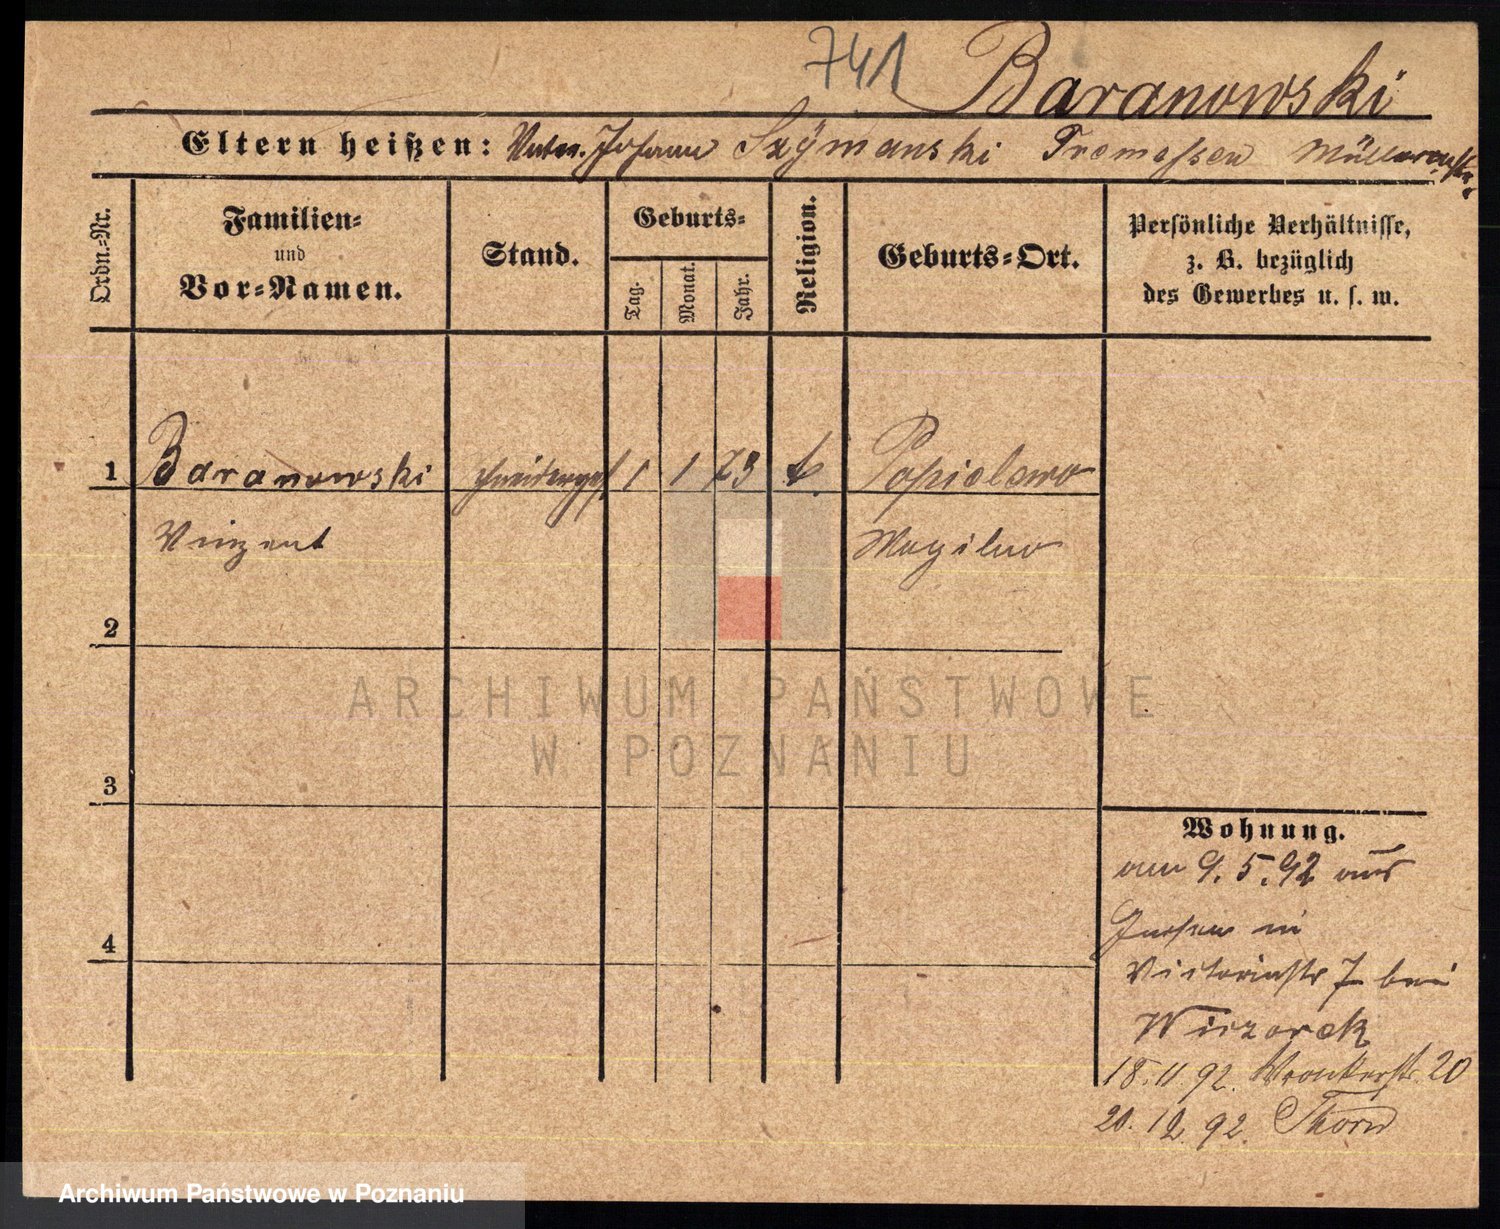 741 Baranowski
Eltern heißen: Johann Szymanski Tremessen
Ordn.-Nr.
Familien-
und
Vor-Namen.
Stand.
Geburts-
Tag.
Monat.
Jahr.
Religion.
Geburts-Ort.
Persönliche Verhältnisse,
z. B. bezüglich
des Gewerbes u. s. w.
1 Baranowski Schneiderges 1 1 73 k. Popielewo
Vinzent Mogilno
2
3
4
Wohnung.
am 9.5.92 aus
Gnesen in
Victoriastr 7 bei
Wieczorek
18.11 92. Wronkerstr. 20
20.12.92. Thorn
ARCHIWUM PAŃSTWOWE
W POZNANIU
Archiwum Państwowe w Poznaniu